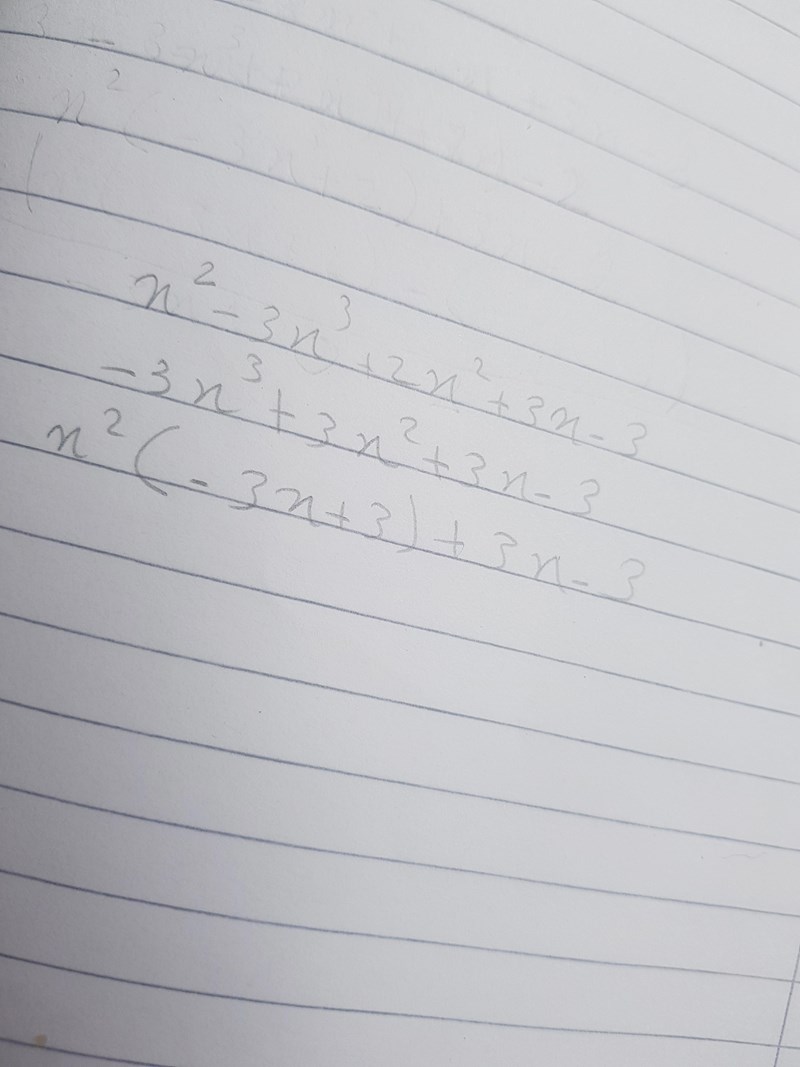 x² - 3x³ + 2x² + 3x - 3
-3x³ + 3x² + 3x - 3
x² (-3x + 3) + 3x - 3